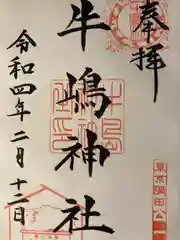 奉拝
牛嶋神社
令和四年二月十二日
東京隅田公